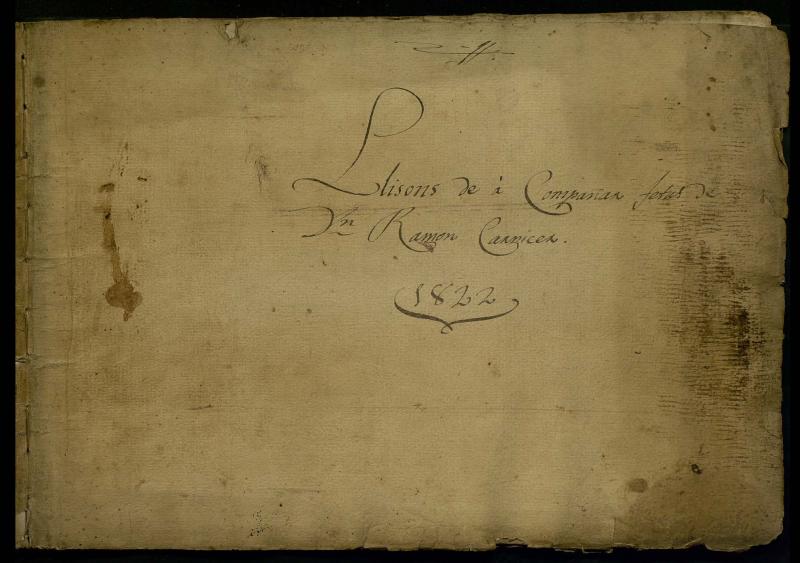 Llisons de á Compañar fetas de
Dn Ramon Carnicer.
1822